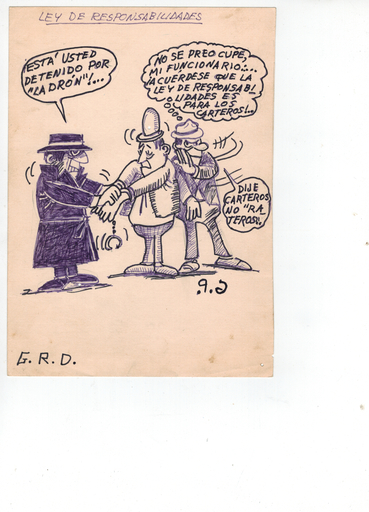 LEY DE RESPONSABILIDADES
¡ESTÁ USTED
DETENIDO POR
"LADRÓN"!...
NO SE PREOCUPE,
MI FUNCIONARIO....
¡ACUERDESE QUE LA
LEY DE RESPONSABI
LIDADES ES
PARA LOS
CARTEROS!..
DIJE
CARTEROS
NO "RA
TEROS"..
G. R. D.